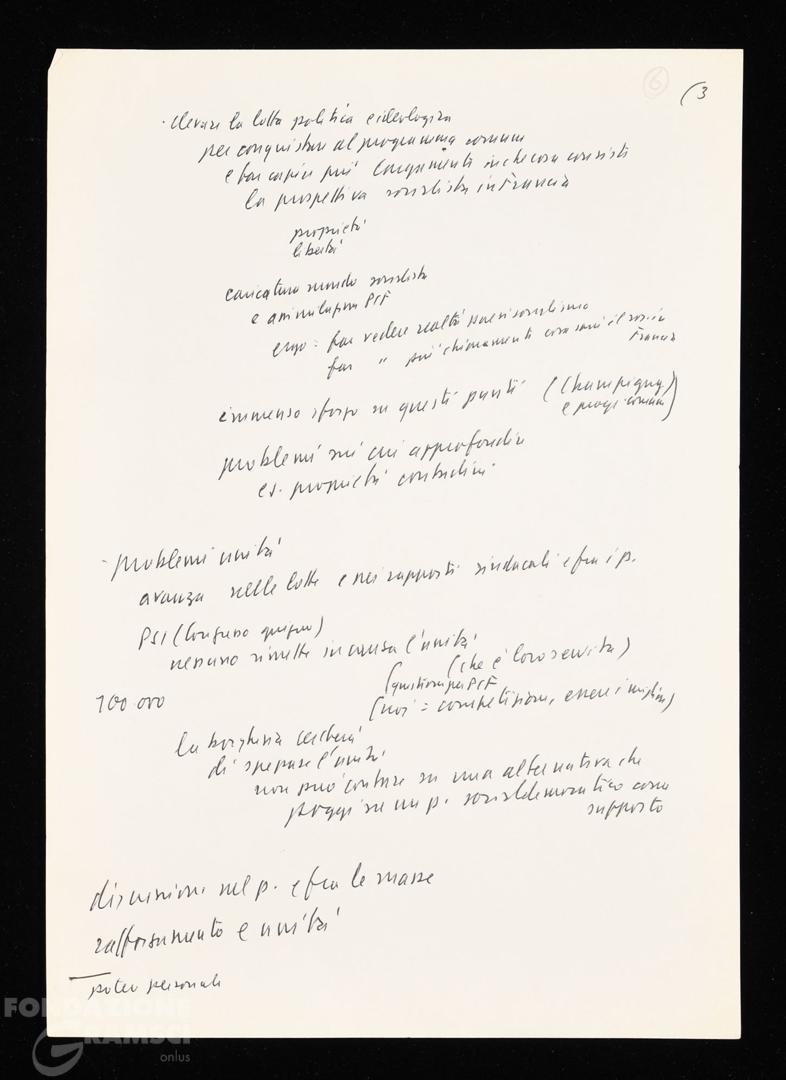 6
(3
· elevare la lotta politica e ideologica
per conquistare al programma comune
e far capire più largamente in che cosa consista
la prospettiva socialista in Francia
proprietà
libertà
caricatura mondo socialista
e assimilazione PCF
ergo = far vedere realtà paesi socialismo
far " più chiaramente cosa sarà il soc. in
Francia
immenso sforzo su questi punti (Champigny
e progr. comune)
problemi su cui approfondire
es. proprietà contadini
- problemi unità
avanza nelle lotte e nei rapporti sindacali e fra i p.
PSI (Longuno giugno)
nessuno rimette in causa l'unità
(che è loro servita)
(questioni per PCF
100 000
(noi = competizione, essere i migliori)
la borghesia cercherà
di spezzare l'unità
non può contare su una alternativa che
poggi su un p. socialdemocratico come
supporto
discussione nel p. e fra le masse
rafforzamento e unità
poteri personali
FONDAZIONE
GRAMSCI
onlus